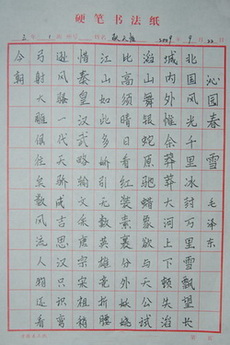 硬笔书法纸
沁园春 雪 毛泽东
北国风光千里冰封万里雪飘望长
城内外惟余莽莽大河上下顿失滔
滔山舞银蛇原驰蜡象欲与天公试
比高须晴日看红装素裹分外妖娆
江山如此多娇引无数英雄竞折腰
惜秦皇汉武略输文采唐宗宋祖稍
逊风骚一代天骄成吉思汗只识弯
弓射大雕俱往矣数风流人物还看
今朝